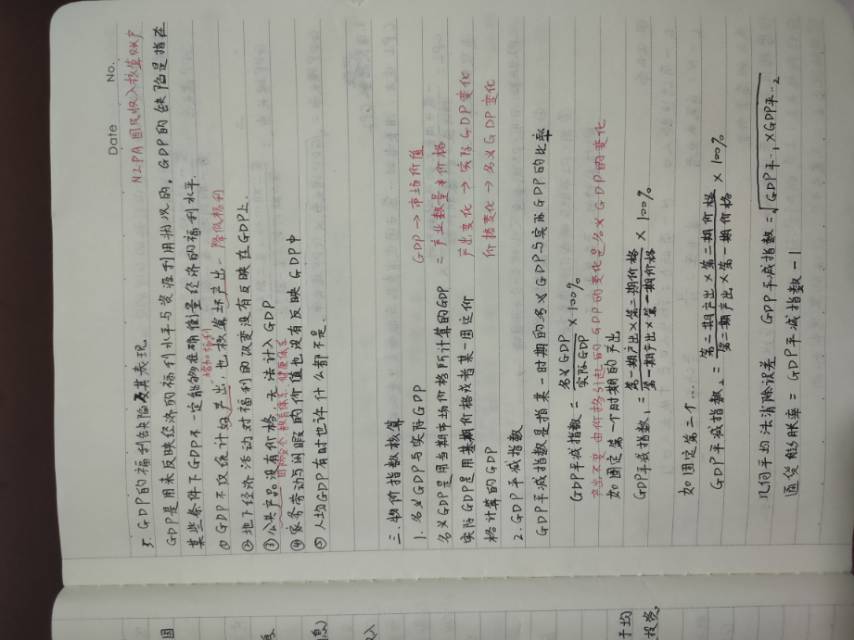 Date No.
N2PA 国民收入核算账户
5. GDP的福利缺陷及其表现
GDP是用来反映经济的福利水平与资源利用状况的，GDP的缺陷是指在
某些条件下GDP不一定能够准确衡量经济的福利水平.
增加福利
① GDP不仅统计好产出，也核算坏产出－降低福利
② 地下经济活动对福利的改变没有反映在GDP上.
③ 公共产品没有价格，无法计入GDP
④ 家务劳动与闲暇的价值也没有反映GDP中
⑤ 人均GDP有时也许什么都不是.
三. 物价指数核算
1. 名义GDP与实际GDP GDP → 市场价值
名义GDP是用当期市场价格所计算的GDP = 产业数量×价格
实际GDP是用基期价格或者某一固定价 产出变化 → 实际GDP变化
格计算的GDP 价格变化 → 名义GDP变化
2. GDP平减指数
GDP平减指数是指某一时期的名义GDP与实际GDP的比率
GDP平减指数 = 名义GDP/实际GDP × 100%
产出不变由价格引起的GDP的变化是名义GDP的变化
如固定第一个时期的产出
GDP平减指数₁ = 第一期产出×第二期价格/第一期产出×第一期价格 × 100%
如固定第二个…
GDP平减指数₂ = 第二期产出×第二期价格/第二期产出×第一期价格 × 100%
几何平均法消除误差 GDP平减指数 = √GDP平…₁×GDP平…₂
通货膨胀率 = GDP平减指数 － 1
国
息)
收入
平均
投资.